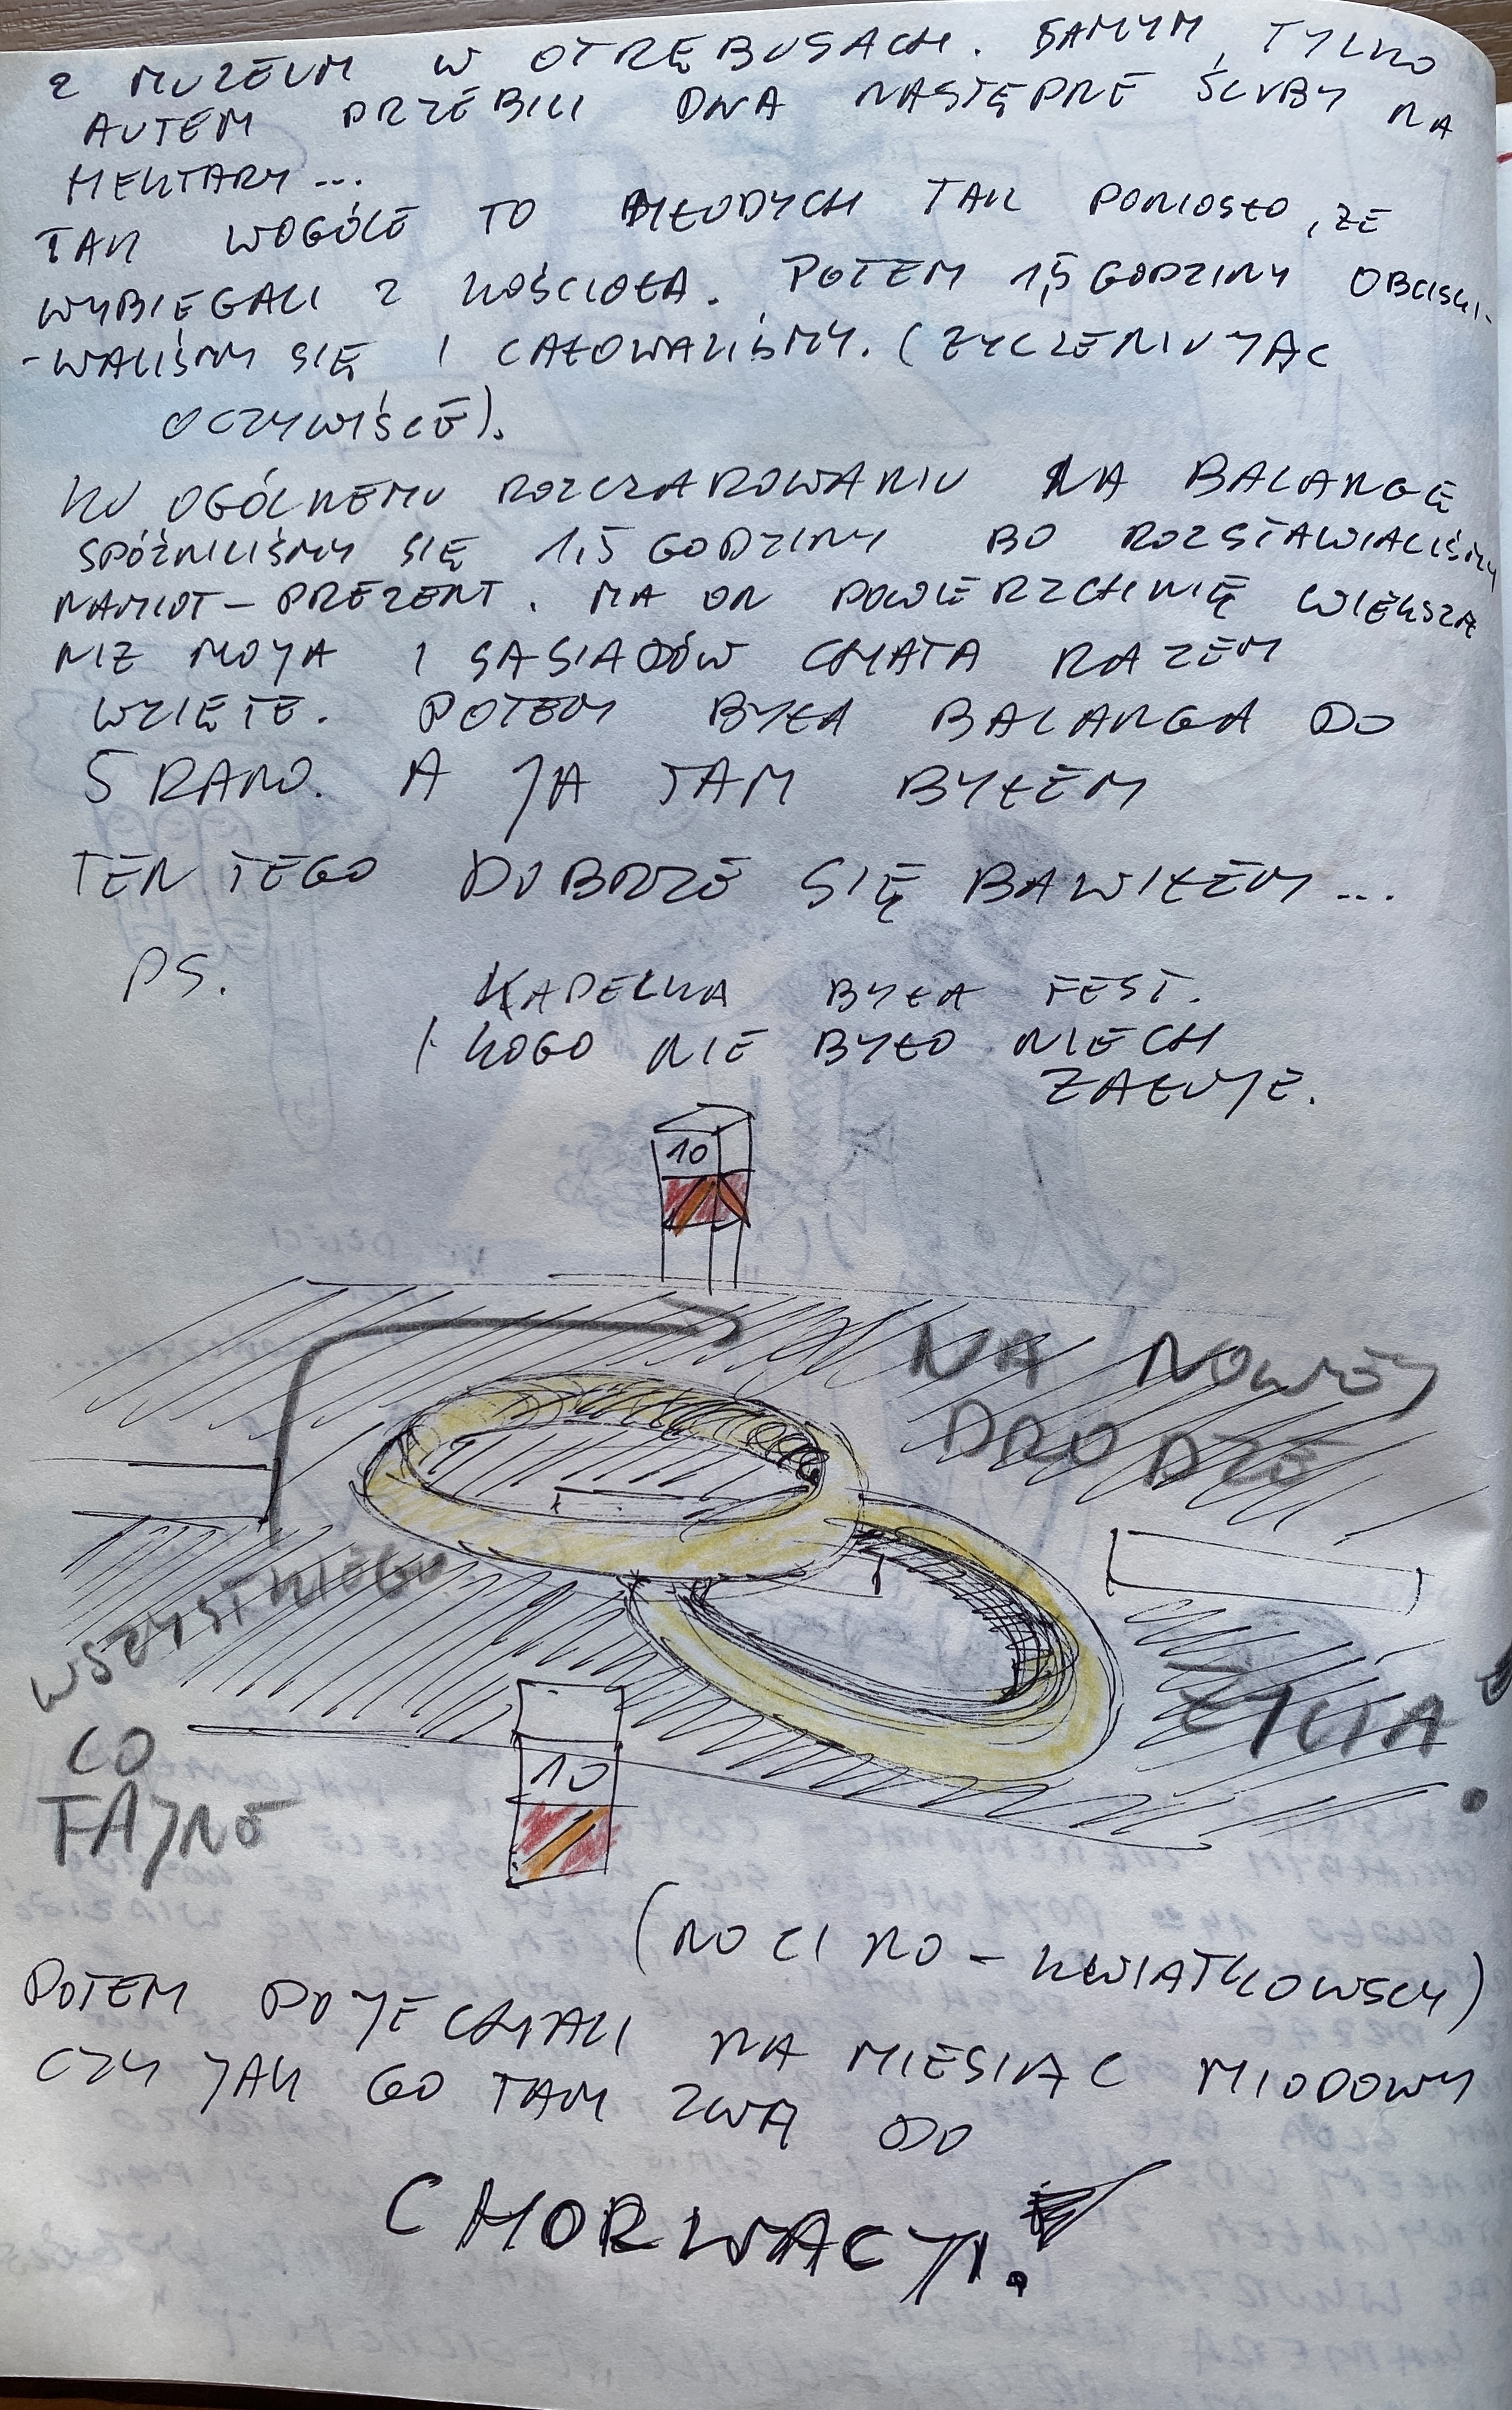 Z MUZEUM W OTRĘBUSACH. SAMYM TYLKO
AUTEM PRZEBILI DWA NASTĘPNE ŚLUBY NA
HEKTARY...
TAK WOGÓLE TO MŁODYCH TAK PONIOSŁO, ŻE
WYBIEGALI Z KOŚCIOŁA. POTEM 1,5 GODZINY OBCISKI-
-WALIŚMY SIĘ I CAŁOWALIŚMY. (ŻYCZENIUJĄC
OCZYWIŚCIE).
KU OGÓLNEMU ROZCZAROWANIU NA BALANGĘ
SPÓŹNILIŚMY SIĘ 1,5 GODZINY BO ROZSTAWIALIŚMY
NAMIOT - PREZENT. MA ON POWIERZCHNIĘ WIĘKSZĄ
NIZ MOJA I SĄSIADÓW CHATA RAZEM
WZIĘTE. POTEM BYŁA BALANGA DO
5 RANO. A JA TAM BYŁEM
TEN TEGO DOBRZE SIĘ BAWIŁEM...
PS. KAPELKA BYŁA FEST.
I KOGO NIE BYŁO NIECH
ŻAŁUJE.
10
NA NOWEJ
DRODZE
WSZYSTKIEGO
CO
FAJNE
ŻYCIA!
10
(NOCINO - KWIATKOWSCY)
POTEM POJECHALI NA MIESIĄC MIODOWY
CZY JAK GO TAM ZWĄ DO
CHORWACJI!